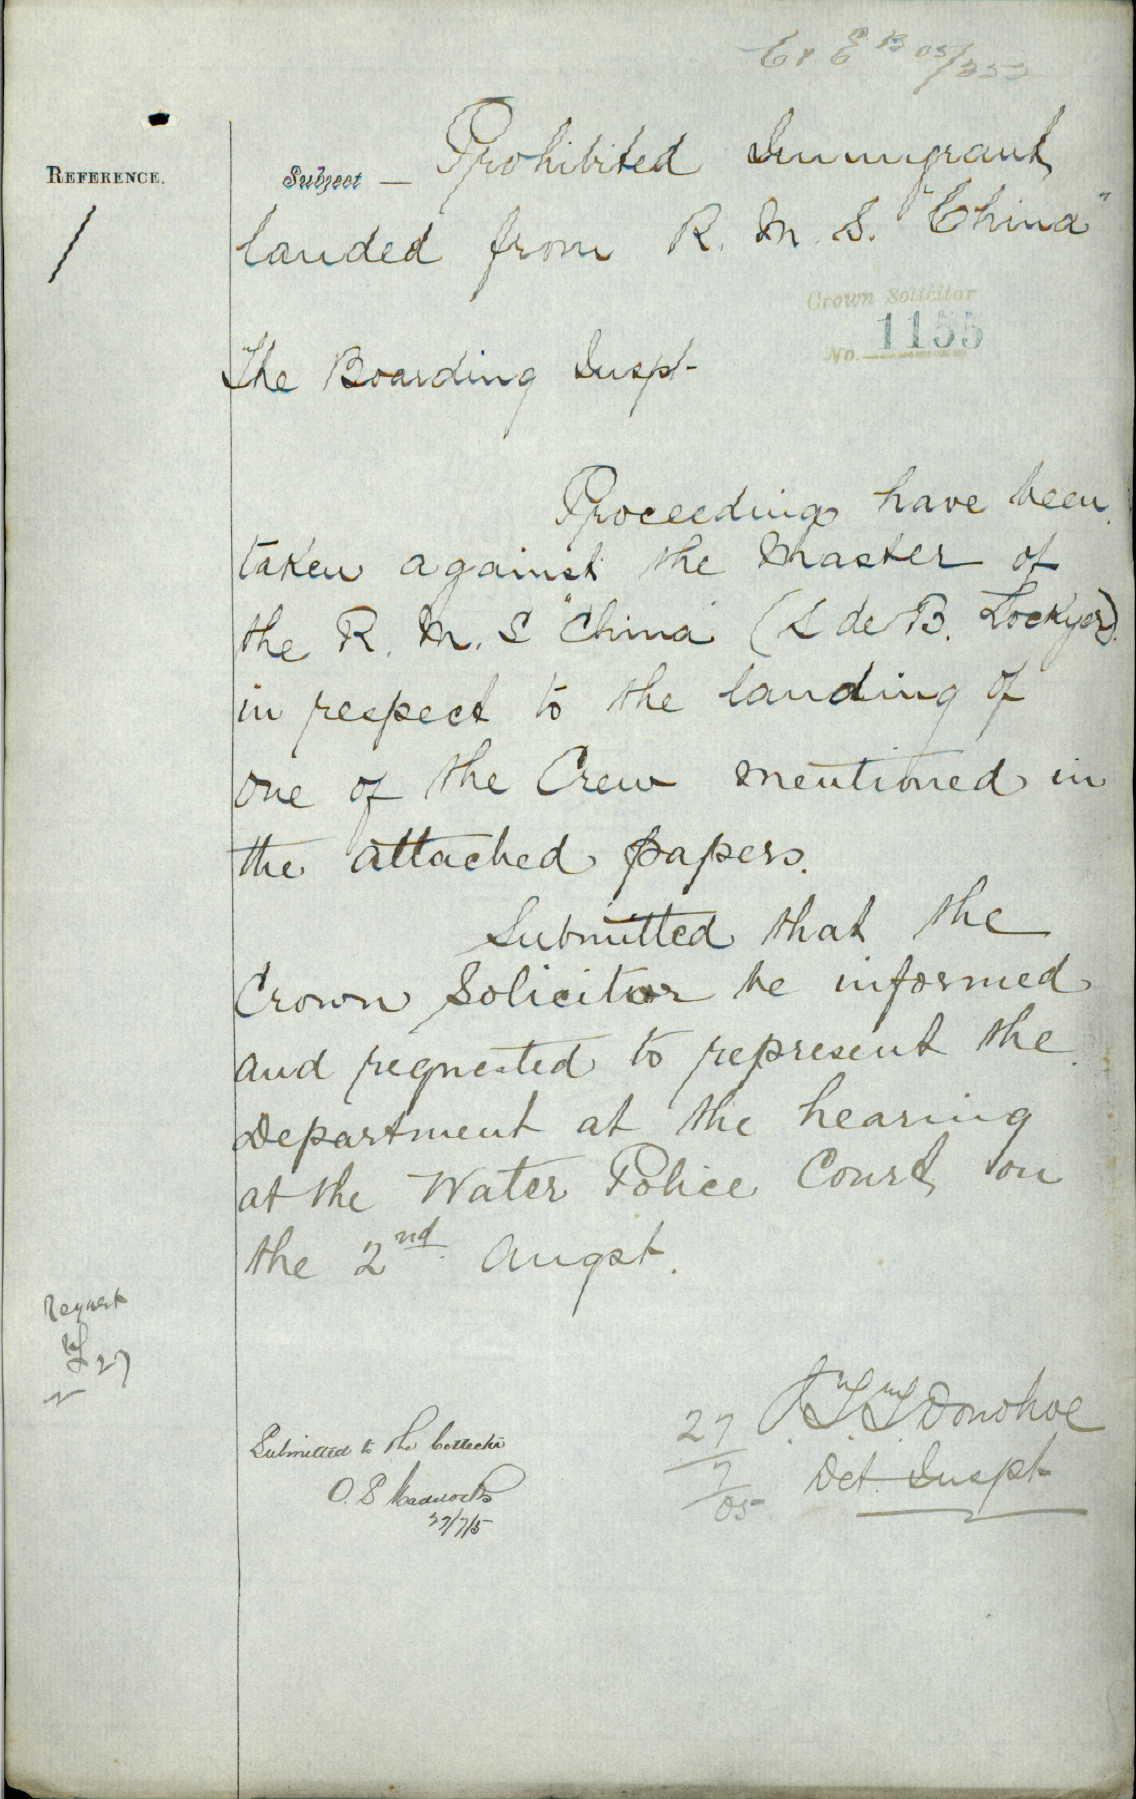 C & E B 05/353
REFERENCE.
Subject — Prohibited Immigrant
landed from R. M. S. "China"
Crown Solicitor
No. 1155
The Boarding Inspt-
Proceedings have been
taken against the Master of
the R. M. S "China" (L de B. Lockyer)
in respect to the landing of
one of the Crew mentioned in
the attached papers.
Submitted that the
Crown Solicitor be informed
and requested to represent the
Department at the hearing
at the Water Police Court on
the 2nd Augst.
Request
27
Donohoe
27/7/05 Det. Inspt
Submitted to the Collector
27/7/5